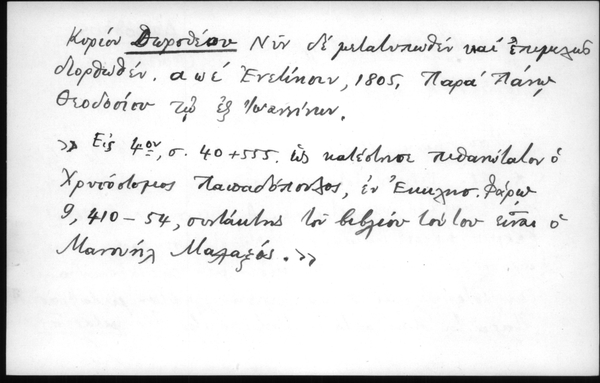 Κυρίου Δωροθέου Νῦν δέ μετατυπωθέν καί ἐπιμελῶς
διορθωθέν. αωέ Ἐνετίησιν, 1805. Παρά Πάνῳ
Θεοδοσίου τῷ ἐξ Ἰωαννίνων.
» Εἰς 4ον, σ. 40+555. ὡς κατέστησε πιθανώτατον ὁ
Χρυσόστομος Παπαδόπουλος, ἐν Ἐκκλησ. Φάρῳ
9, 410-54, συντάκτης τοῦ βιβλίου τούτου εἶναι ὁ
Μανουήλ Μαλαξός. »